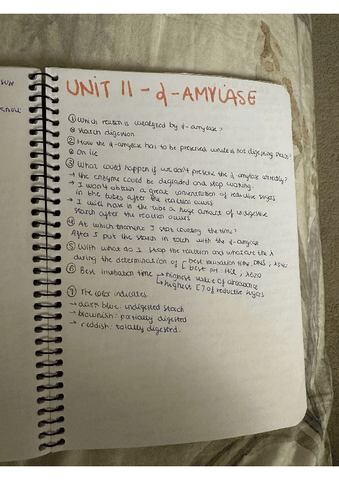 UNIT 11 - α-AMYLASE
① Which reaction is catalyzed by α-amylase?
⊗ Starch digestion
② How the α-amylase has to be preserved while is not digesting starch?
⊗ On ice
③ What could happen if we don't preserve the α-amylase correctly?
→ the enzyme could be degraded and stop working.
→ I won't obtain a great concentration of reductive sugars
in the tubes after the reaction occurs
→ I will have in the tube a huge amount of undigestive
starch after the reaction occurs
④ At which I start counting the time?
After I put the starch in touch with the α-amylase
⑤ With what do I stop the reaction and what are the λ
during the determination of best incubation time: DNS, λ540
best pH: HCl, λ620
⑥ Best incubation time → highest value of absorbance
→ highest [ ] of reductive sugars
⑦ The color indicates
→ dark blue: undigested starch
→ brownish: partially digested
→ reddish: totally digested.